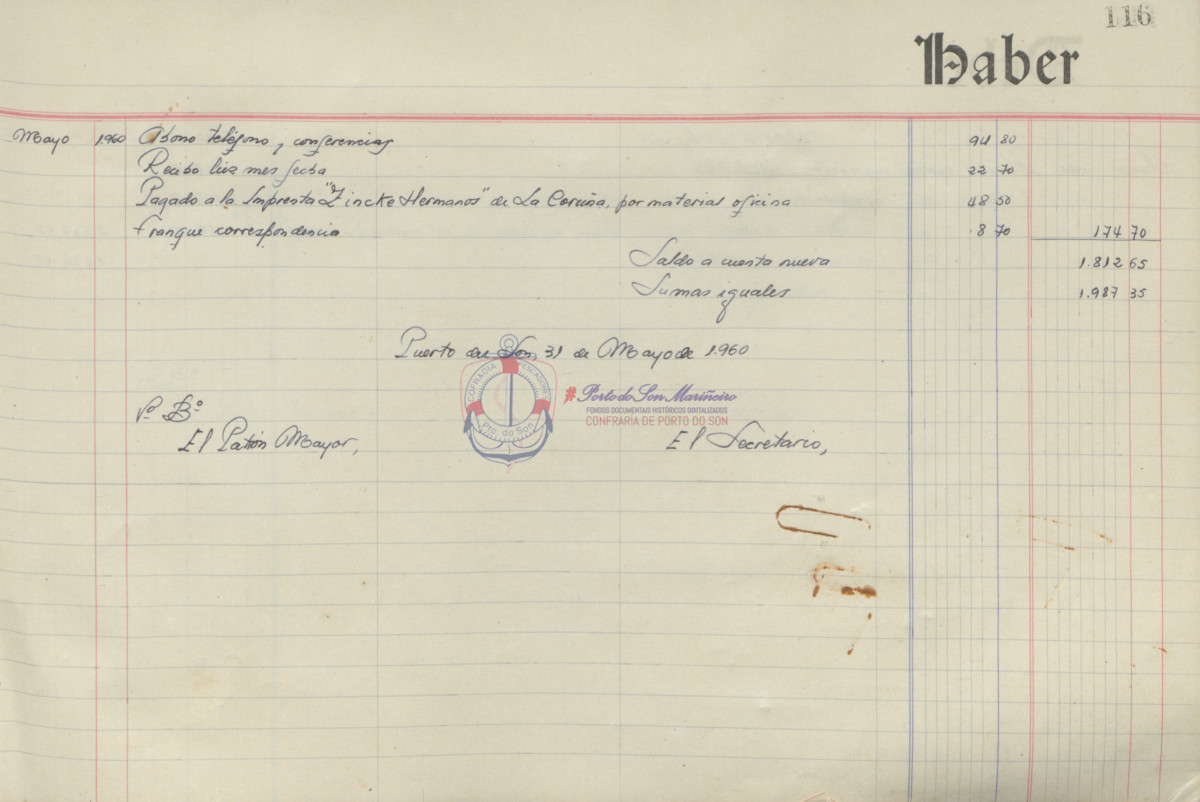 116
Haber
Mayo 1.960 Abono teléfono y conferencias 94 80
Recibo luz mes fecha 22 70
Pagado a la Imprenta "Zincke Hermanos" de La Coruña, por material oficina 48 50
Franque correspondencia 8 70 174 70
Saldo a cuenta nueva 1.812 65
Sumas iguales 1.987 35
Puerto del Son, 31 de Mayo de 1.960
COFRADIA PESCADORES
Pto. do Son
#Porto do Son Mariñeiro
FONDOS DOCUMENTAIS HISTÓRICOS DIXITALIZADOS
CONFRARÍA DE PORTO DO SON
Vº Bº
El Patrón Mayor, El Secretario,